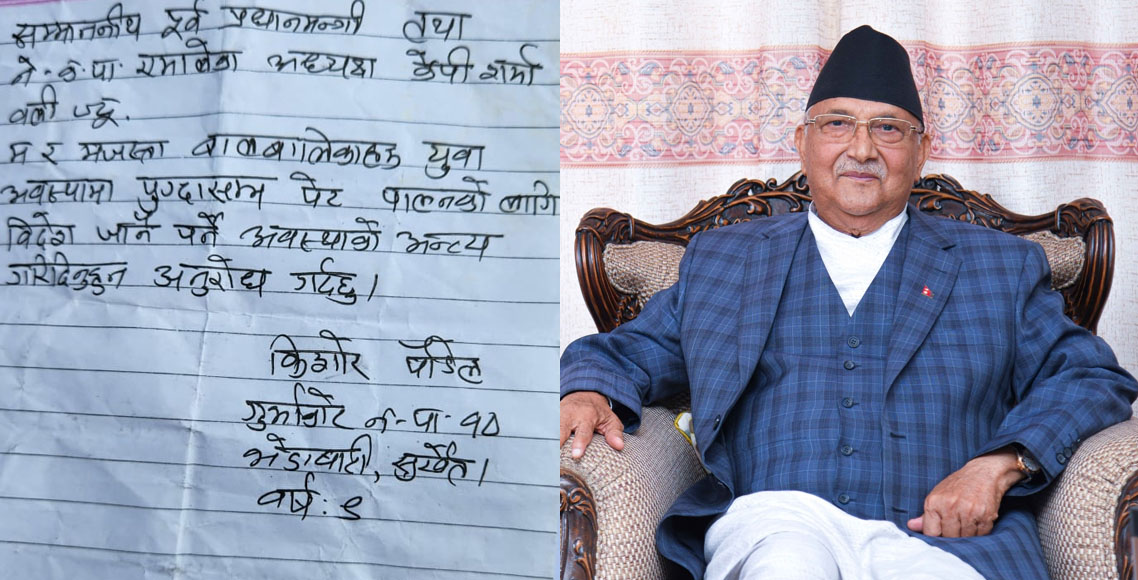 सम्माननीय पूर्व प्रधानमन्त्री तथा
ने.क.पा. एमालेका अध्यक्ष केपी शर्मा
वली ज्यू.
म र मजस्ता बालबालिकाहरु युवा
अवस्थामा पुग्दासम्म पेट पालनको लागि
विदेश जानै पर्ने अवस्थाको अन्त्य
गरिदिनुहुन अनुरोध गर्दछु।
किशोर पौडेल
गुर्भाकोट न-पा-१०
भेडाघारी, सुर्खेत।
वर्ष: ९